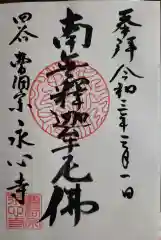 奉拝 令和三年三月一日
南無釋迦牟尼佛
四谷 曹洞宗 永心寺